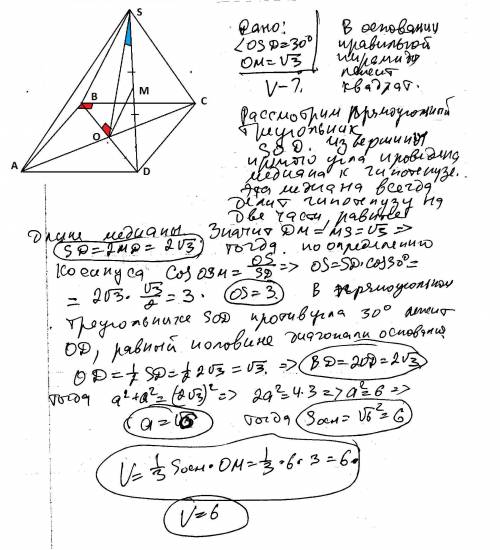 S
M
B
C
O
A
D
Дано:
∠OSD=30°
OM=√3
V-?
В основании
правильной
пирамиды
лежит
квадрат.
Рассмотрим прямоугольный
треугольник
SOD. из вершины
прямого угла проведена
медиана к гипотенузе.
Эта медиана всегда
делит гипотенузу на
две части, равные
длине медианы. Значит DM=MS=√3 =>
SD=2MD=2√3 тогда по определению
косинуса cos OSM = OS/SD => OS=SD·cos30°=
= 2√3 · √3/2 = 3. OS=3. В прямоугольном
треугольнике SOD против угла 30° лежит
OD, равный половине диагонали основания
OD=½SD=½2√3=√3. => BD=2OD=2√3
тогда a²+a²=(2√3)² => 2a²=4·3=>a²=6=>
a=√6 тогда Sосн=√6²=6
V=⅓Sосн·OM=⅓·6·3=6.
V=6